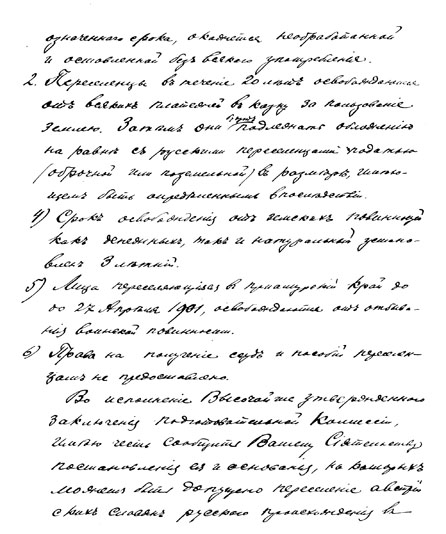 означеннаго срока, окажется необработанной
и оставленной безъ всякаго употребленія.
2. Переселенцы въ теченіе 20 лѣтъ освобождаются
отъ всякихъ платежей въ казну за пользованіе
землею. Затѣмъ они будутъ подлежать обложенію
на равнѣ съ русскими переселенцами податью
(оброчной или поземельной) въ размѣрѣ, имѣю-
щемъ быть опредѣленнымъ впослѣдствіи.
4) Срокъ освобожденія отъ земскихъ повинностей
какъ денежныхъ, такъ и натуральной установ-
ленъ 3 лѣтній.
5) Лица переселяющіяся въ приамурскій край до
до 27 Апрѣля 1901, освобождаются отъ отбыва-
нія воинской повинности.
6) Права на полученіе ссудъ и пособій переселен-
цамъ не предоставлено.
Во исполненіе Высочайше утвержденнаго
заключенія подготовительной Комиссіи,
имѣю честь сообщить Вашему Сіятельству
постановленія ея и основанія, на которыхъ
можетъ быть допущено переселеніе австрій
скихъ славянъ русскаго происхожденія въ